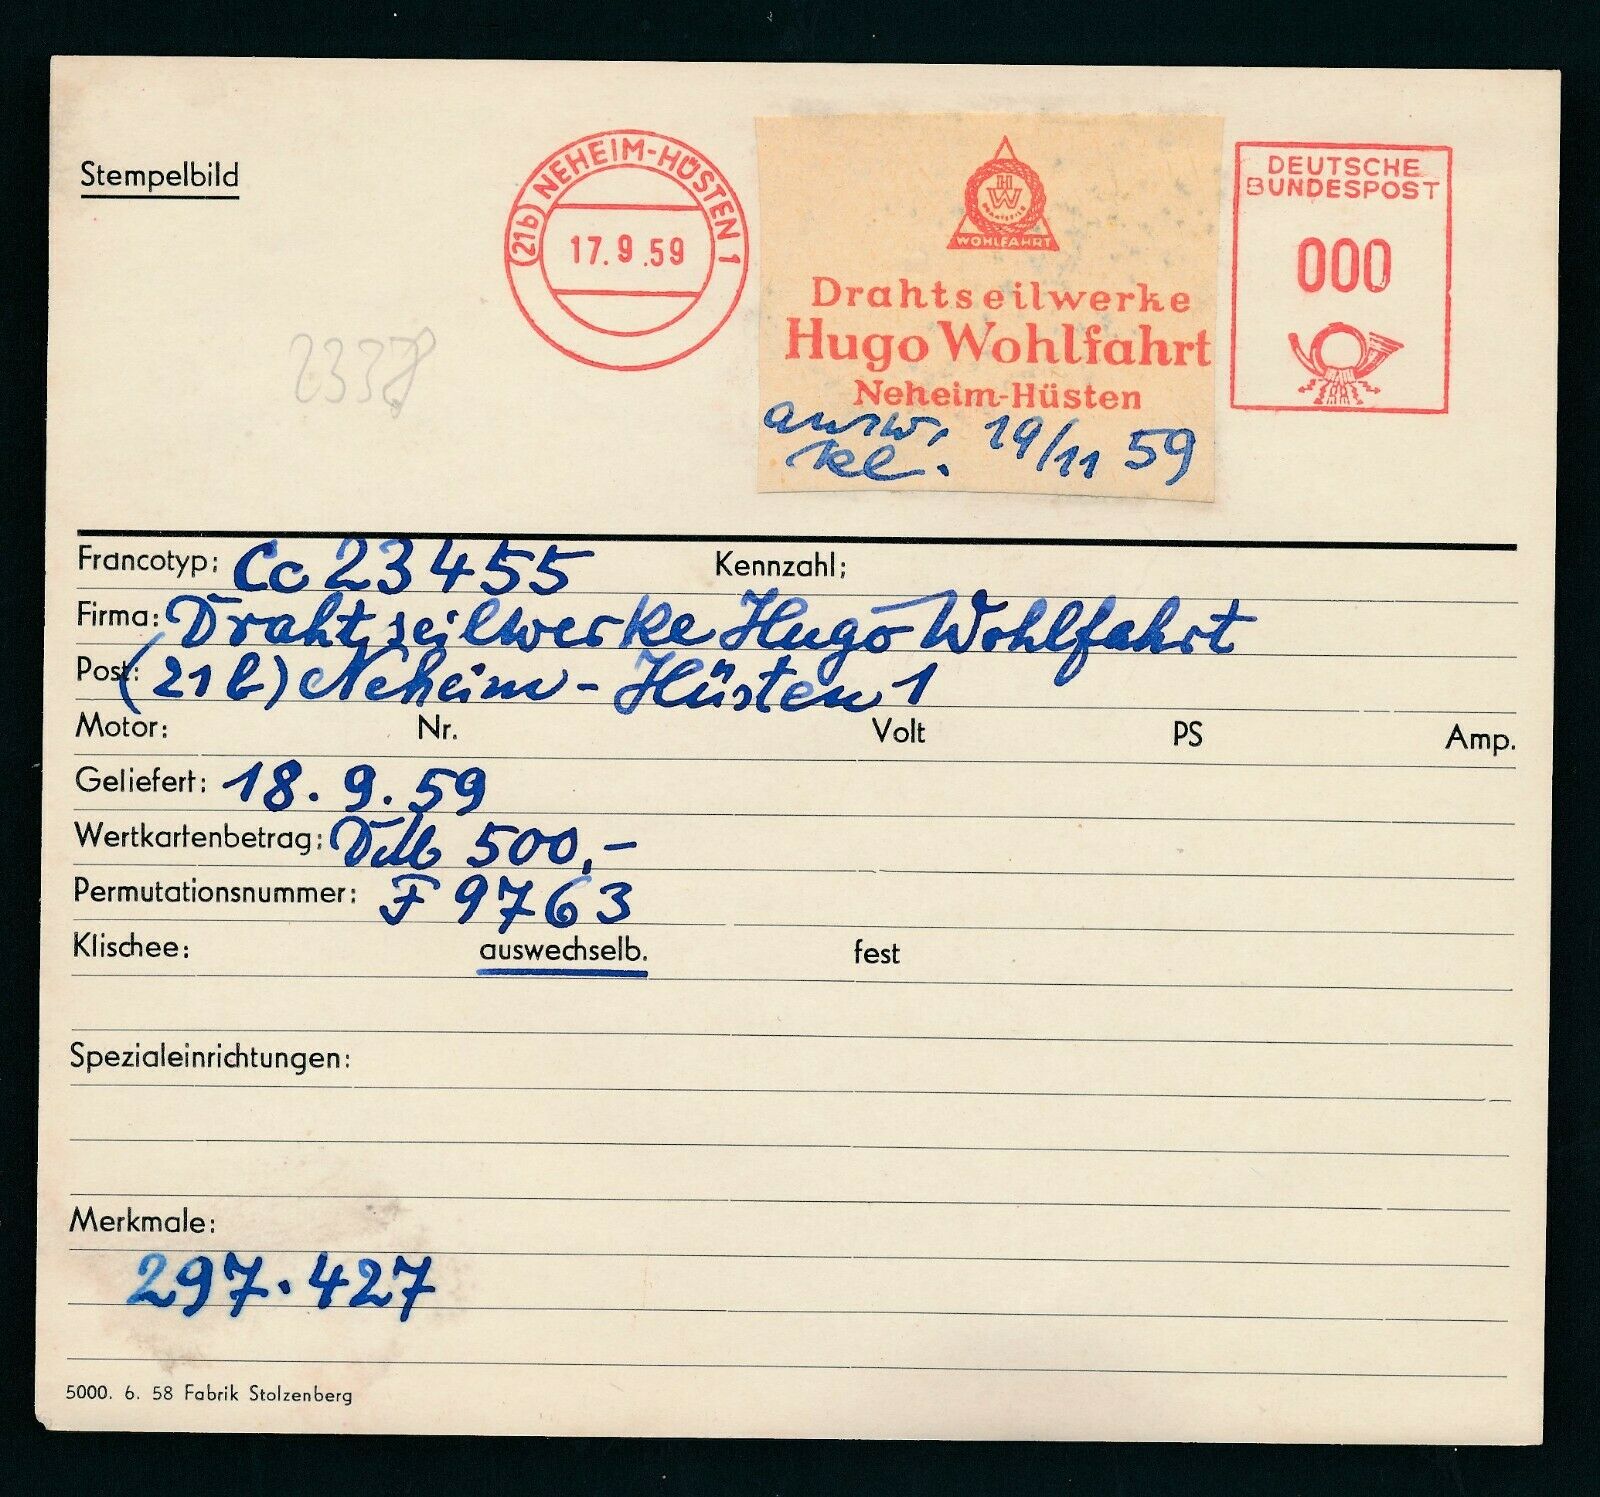 Stempelbild
(21b) NEHEIM-HÜSTEN 1
17.9.59
HW
WOHLFAHRT
Drahtseilwerke
Hugo Wohlfahrt
Neheim-Hüsten
ausw. 19/11 59
Kl.
DEUTSCHE
BUNDESPOST
000
2337
Francotyp: Cc 23455 Kennzahl:
Firma: Drahtseilwerke Hugo Wohlfahrt
Post: (21b) Neheim-Hüsten 1
Motor: Nr. Volt PS Amp.
Geliefert: 18.9.59
Wertkartenbetrag: DM 500,-
Permutationsnummer: F 9763
Klischee: auswechselb. fest
Spezialeinrichtungen:
Merkmale:
297.427
5000. 6. 58 Fabrik Stolzenberg